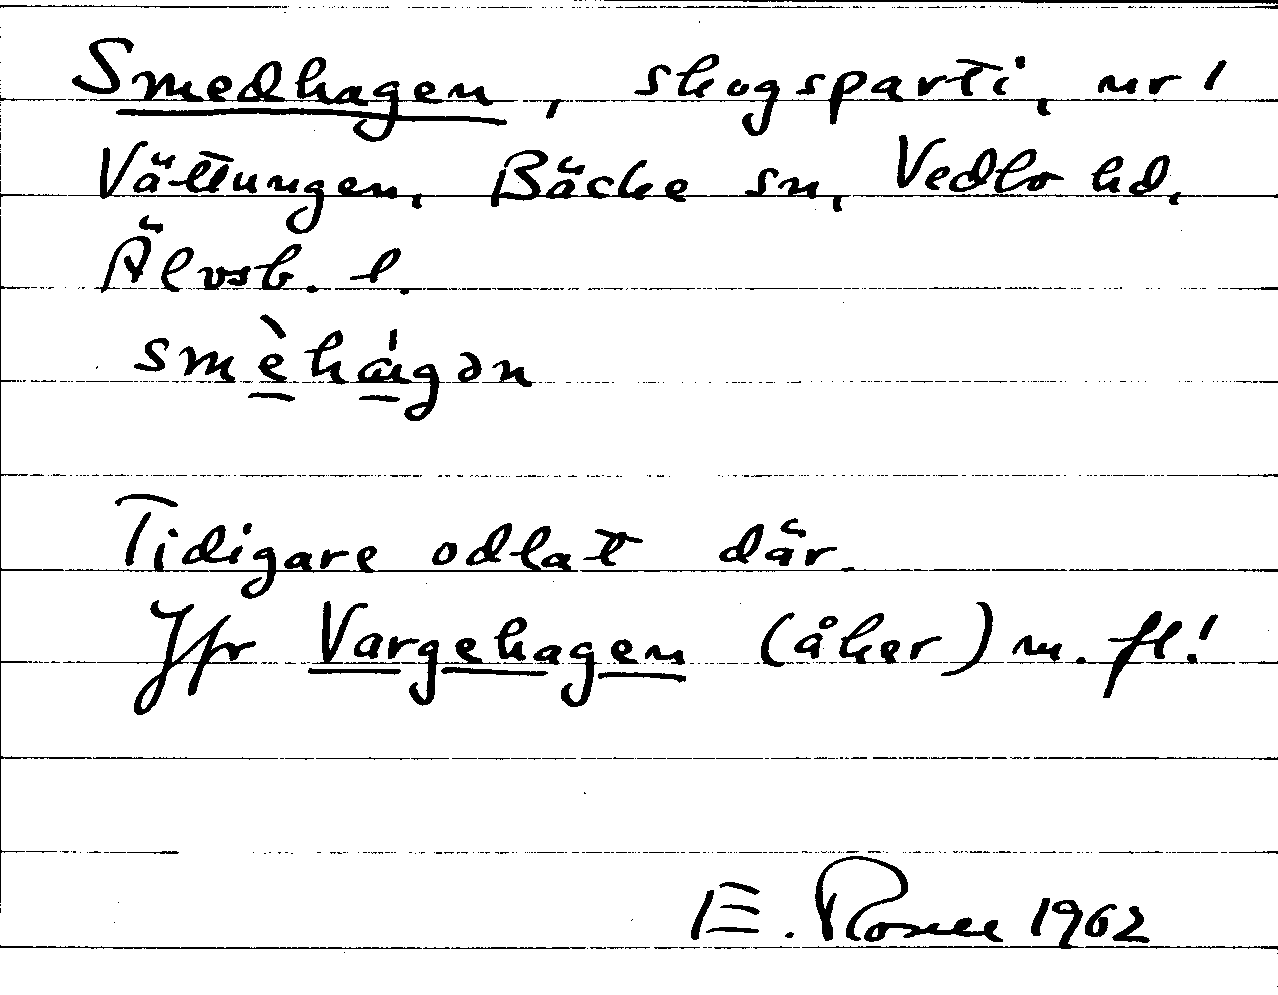 Smedhagen, skogsparti, nr 1
Vättungen, Bäcke sn, Vedbo hd,
Älvsb. l.
smèhágən
Tidigare odlat där.
Jfr Vargehagen (åker) m. fl!
E. 1962